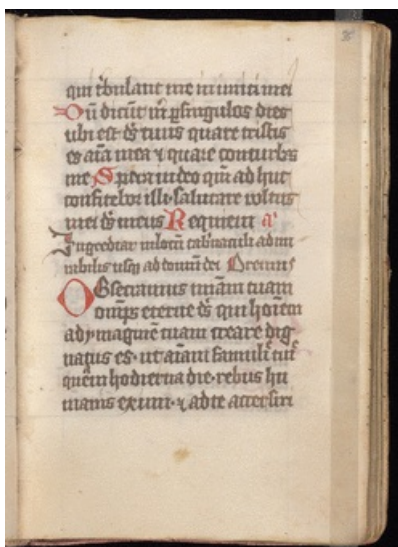 qui tͥbulant me inimici mei
Dū dicūt m̄ ꝑsingulos dies
ubi est dꝰ tuus quare tristis
es aīa mea ⁊ quare conturbs
me Spera indeo qm̄ ad huc
confitebor illi salutare vultus
mei dꝰ meus Requiem aͤ
Ingrediar inlocū tab̄naculi adm
irabilis usqꝫ ad domū dei Oremus
OBsecramus imām tuam
omīps eterne dꝰ qui hoīem
adymaginē tuam creare dig
natus es· ut aīam famuli tui
quem hodierna die·rebus hu
manis eximi·⁊ adte accersiri